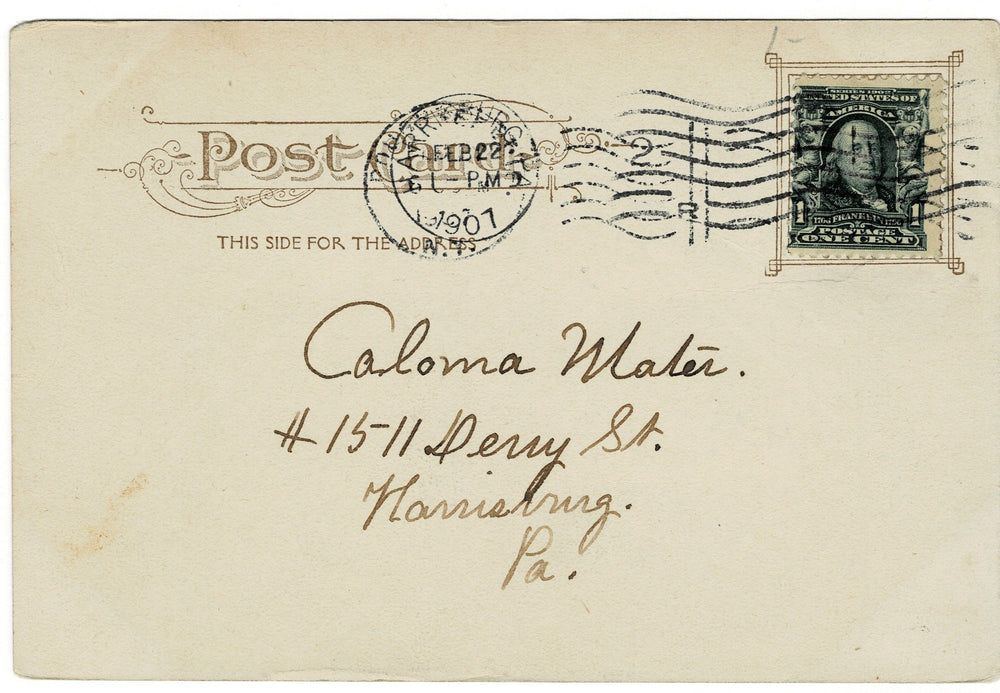 Post Card
FEB 22
PM
1907
N.Y.
2
R
SERIES 1902
UNITED STATES OF
AMERICA
FRANKLIN
POSTAGE
ONE CENT
THIS SIDE FOR THE ADDRESS
Caloma Mater.
# 1511 Derry St.
Harrisburg.
Pa.